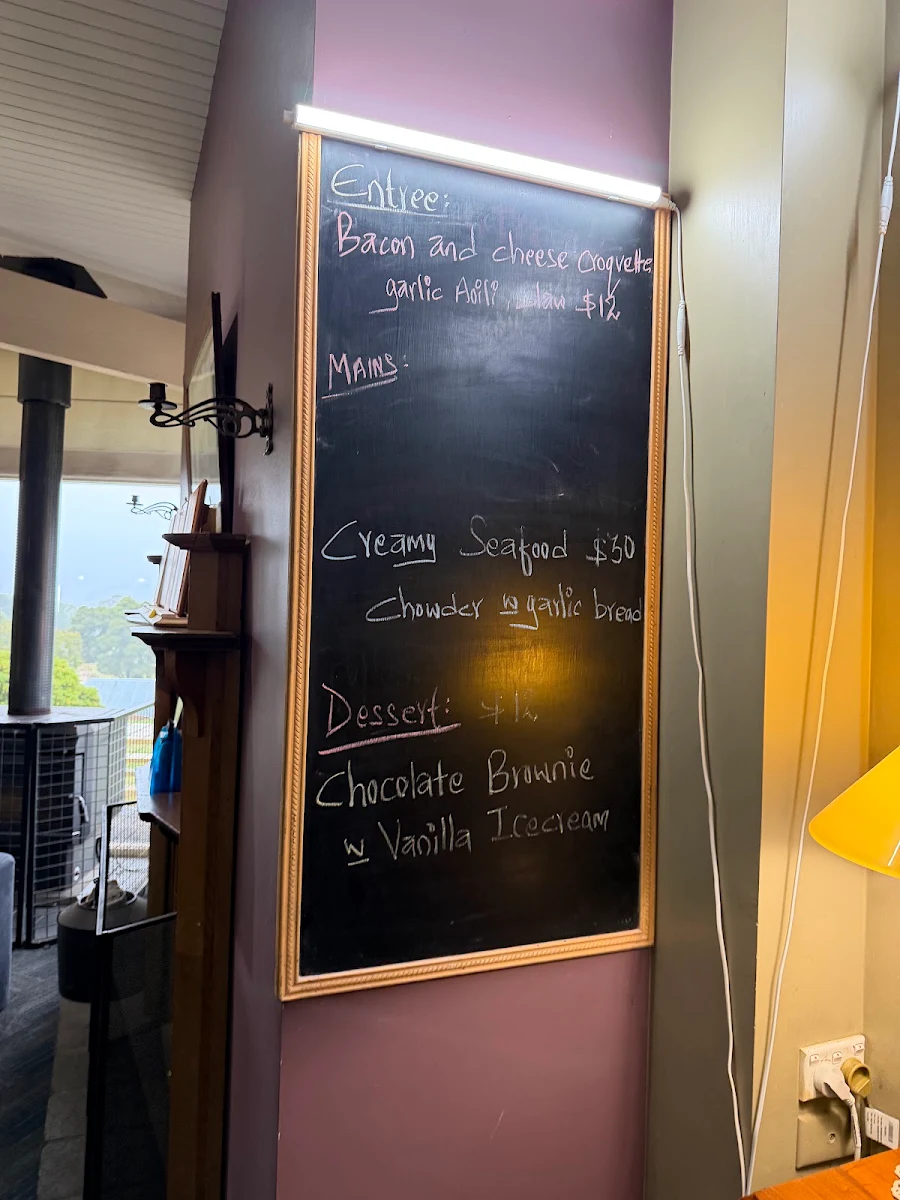 Entree:
Bacon and cheese croquette
garlic Aoili, slaw $12
MAINS:
Creamy Seafood $30
Chowder w garlic bread
Dessert: $12
Chocolate Brownie
w Vanilla Icecream